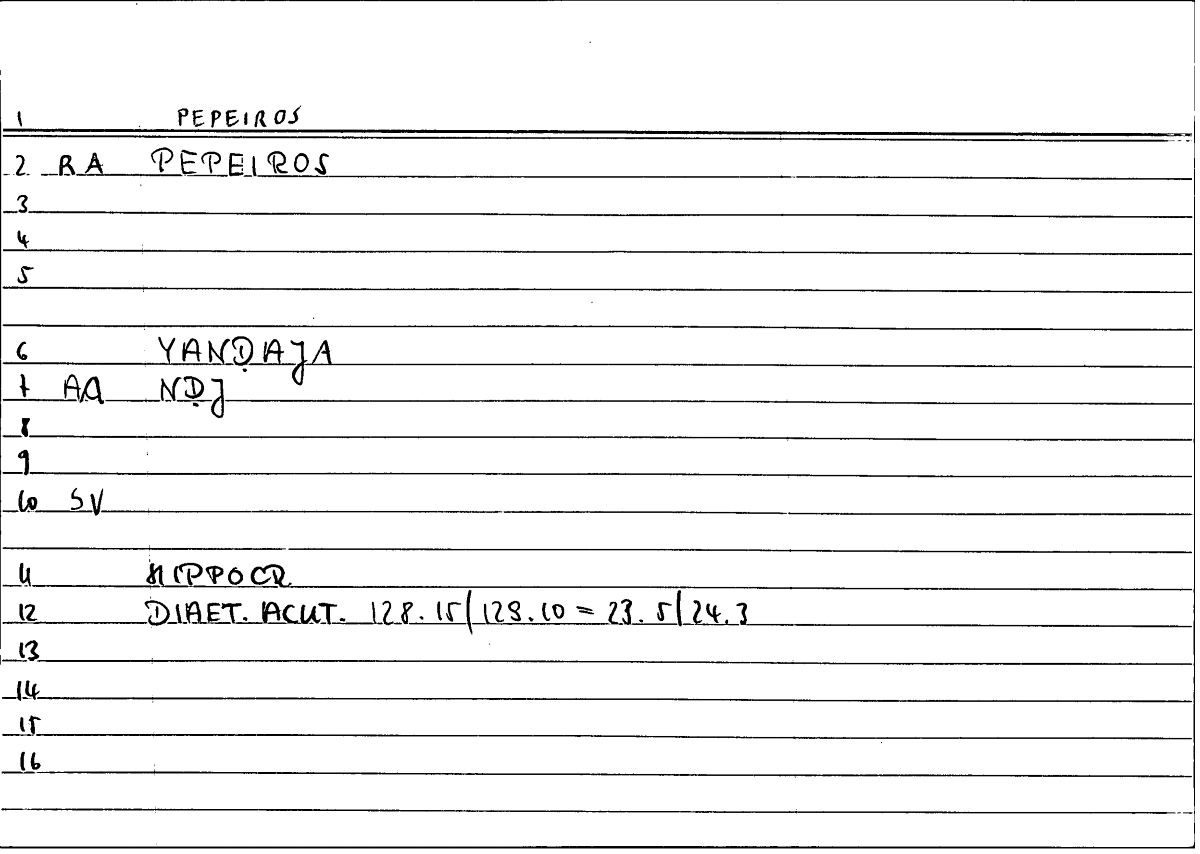 1 PEPEIROS
2 RA PEPEIROS
3
4
5
6 YANḌAJA
7 AQ NḌJ
8
9
10 SV
11 HIPPOCR
12 DIAET. ACUT. 128.15/129.10 = 23.5/24.3
13
14
15
16